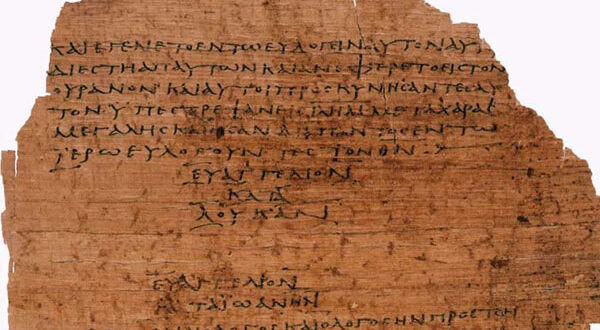 ΚΑΙΕΓΕΝΕΤΟΕΝΤΩΕΥΛΟΓΕΙΝΑΥΤΟΝΑΥ
ΔΙΕϹΤΗΑΠΑΥΤΩΝΚΑΙΑΝΕΦΕΡΕΤΟΕΙϹΤΟΝ
ΟΥΡΑΝΟΝΚΑΙΑΥΤΟΙΠΡΟϹΚΥΝΗϹΑΝΤΕϹΑΥ
ΤΟΝΥΠΕϹΤΡΕΨΑΝΕΙϹΙΛΗΜΜΕΤΑΧΑΡΑϹ
ΜΕΓΑΛΗϹΚΑΙΗϹΑΝΔΙΑΠΑΝΤΟϹΕΝΤΩ
ΙΕΡΩΕΥΛΟΓΟΥΝΤΕϹΤΟΝΘΝ
ΕΥΑΓΓΕΛΙΟΝ
ΚΑΤΑ
ΛΟΥΚΑΝ
ΕΥΑΓΓΕΛΙΟΝ
ΚΑΤΑΙΩΑΝΗΝ
ΛΟΓΟϹΚΑΙΟΛΟΓΟϹΗΝΠΡΟϹΤΟΝ